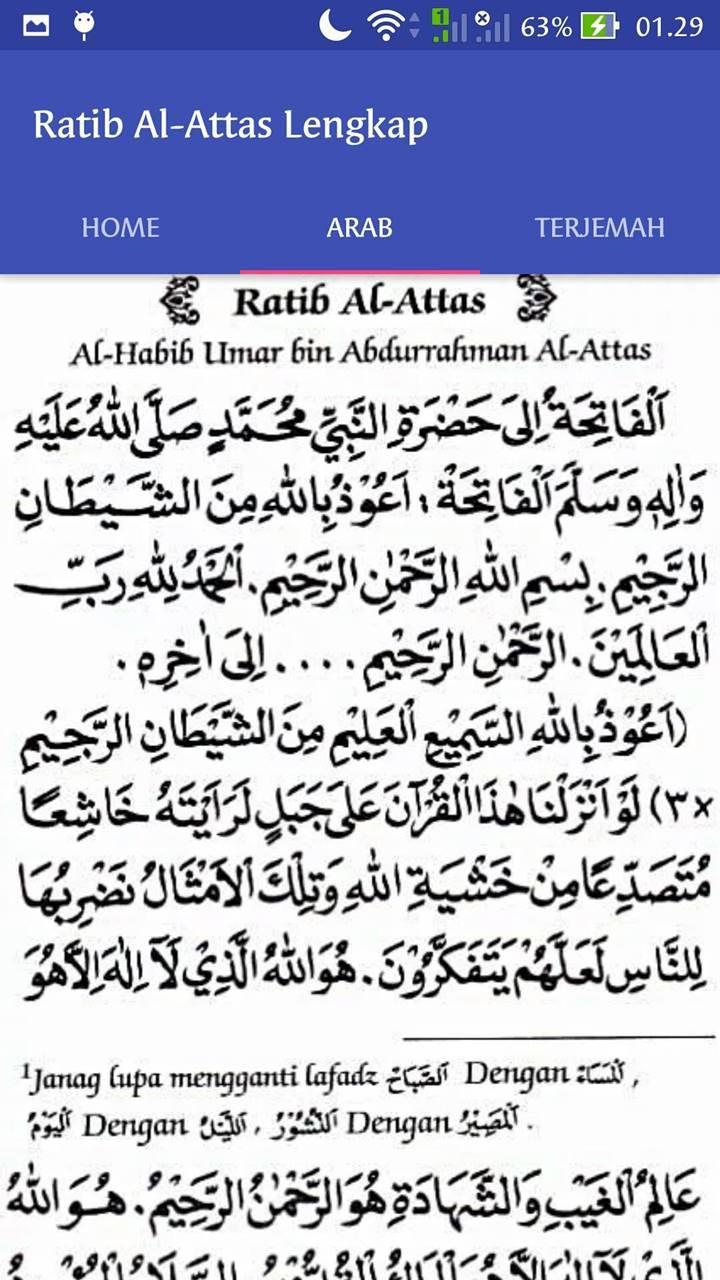 63% 01.29
Ratib Al-Attas Lengkap
HOME ARAB TERJEMAH
Ratib Al-Attas
Al-Habib Umar bin Abdurrahman Al-Attas
اَلْفَاتِحَةُ اِلَى حَضْرَةِ النَّبِيِّ مُحَمَّدٍ صَلَّى اللهُ عَلَيْهِ
وَاٰلِهِ وَسَلَّمَ اَلْفَاتِحَةْ : اَعُوْذُ بِاللهِ مِنَ الشَّيْطَانِ
الرَّجِيْمِ. بِسْمِ اللهِ الرَّحْمٰنِ الرَّحِيْمِ. اَلْحَمْدُ لِلهِ رَبِّ
الْعَالَمِيْنَ. الرَّحْمٰنِ الرَّحِيْمِ .... اِلَى اٰخِرِهِ .
(اَعُوْذُ بِاللهِ السَّمِيْعِ الْعَلِيْمِ مِنَ الشَّيْطَانِ الرَّجِيْمِ
×٣) لَوْ اَنْزَلْنَا هٰذَا الْقُرْآنَ عَلَى جَبَلٍ لَرَاَيْتَهُ خَاشِعًا
مُتَصَدِّعًا مِنْ خَشْيَةِ اللهِ وَتِلْكَ الْاَمْثَالُ نَضْرِبُهَا
لِلنَّاسِ لَعَلَّهُمْ يَتَفَكَّرُوْنَ. هُوَ اللهُ الَّذِيْ لَآ اِلٰهَ اِلَّا هُوَ
¹Janag lupa mengganti lafadz اَلصَّبَاحْ Dengan اَلْمَسَاءْ ,
اَلْيَوْمُ Dengan اَللَّيْلُ , اَلنُّشُوْرُ Dengan اَلْمَصِيْرُ .
عَالِمُ الْغَيْبِ وَالشَّهَادَةِ هُوَ الرَّحْمٰنُ الرَّحِيْمُ. هُوَ اللهُ